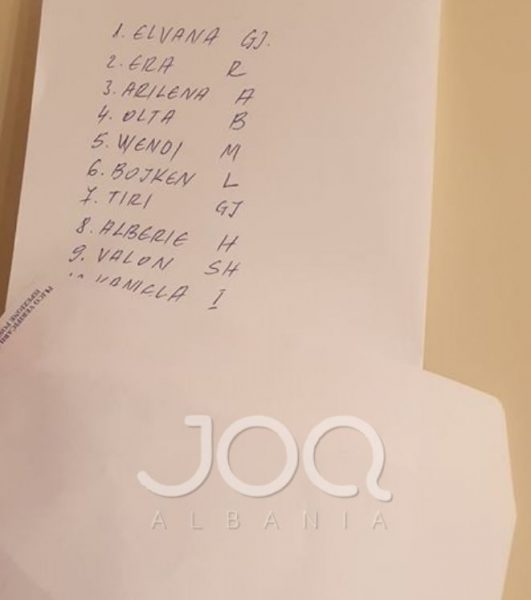 1. ELVANA GJ.
2. ERA R
3. ARILENA A
4. OLTA B
5. WENDI M
6. BOJKEN L
7. TIRI GJ
8. ALBERIE H
9. VALON SH
I
JOQ
ALBANIA